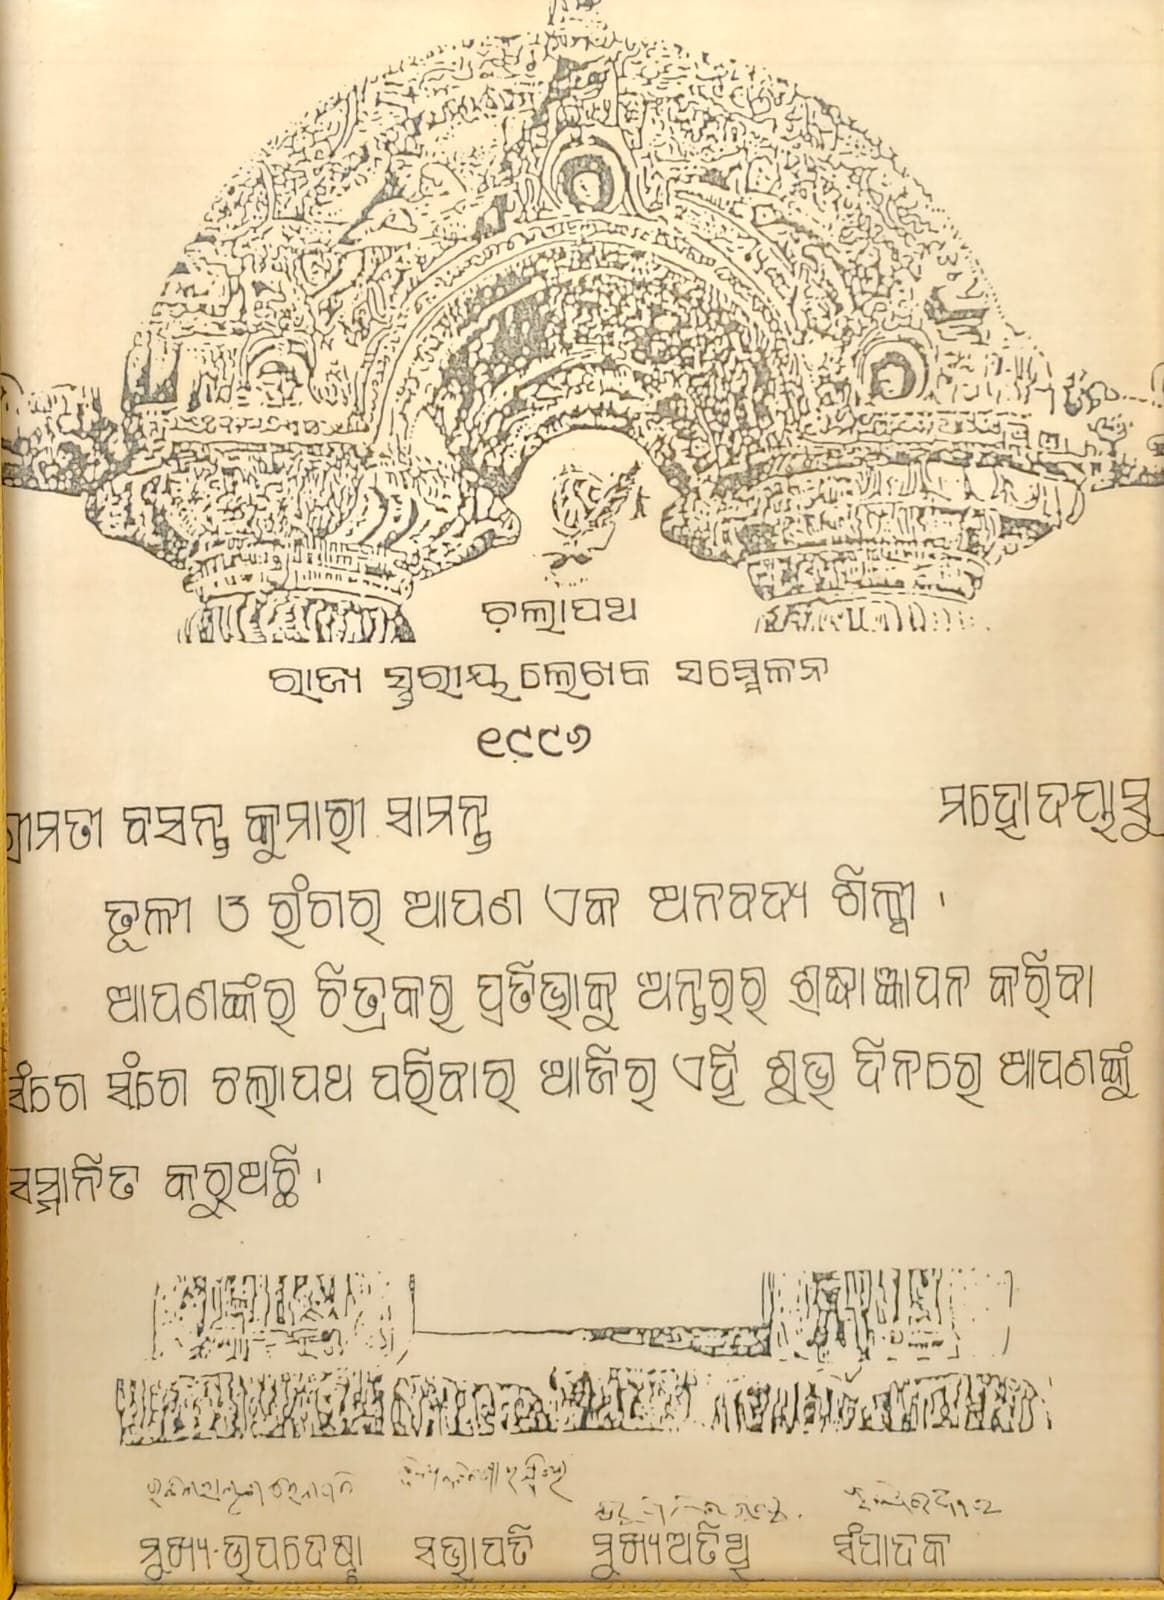 ଚଲାପଥ
ରାଜ୍ୟ ସ୍ତରୀୟ ଲେଖକ ସମ୍ମେଳନ
୧୯୯୬
ଶ୍ରୀମତୀ ବସନ୍ତ କୁମାରୀ ସାମନ୍ତ ମହୋଦୟାସୁ
ତୂଳୀ ଓ ରଂଗର ଆପଣ ଏକ ଅନବଦ୍ୟ ଶିଳ୍ପୀ ।
ଆପଣଙ୍କର ଚିତ୍ରକର ପ୍ରତିଭାକୁ ଅନ୍ତରର ଶ୍ରଦ୍ଧାଜ୍ଞାପନ କରିବା
ସଂଗେ ସଂଗେ ଚଲାପଥ ପରିବାର ଆଜିର ଏହି ଶୁଭ ଦିନରେ ଆପଣଙ୍କୁ
ସମ୍ମାନିତ କରୁଅଛି ।
ମୁଖ୍ୟ-ଉପଦେଷ୍ଟା ସଭାପତି ମୁଖ୍ୟଅତିଥି ସଂପାଦକ